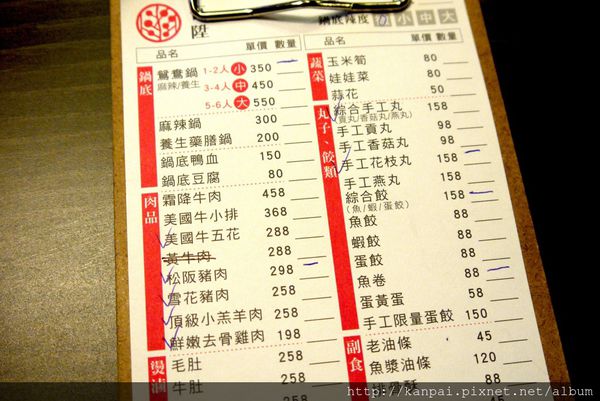 陞
鍋底辣度 小 中 大
品名 單價 數量
鍋底
鴛鴦鍋 1-2人 小 350
麻辣/養生 3-4人 中 450
5-6人 大 550
麻辣鍋 300
養生藥膳鍋 200
鍋底鴨血 150
鍋底豆腐 80
肉品
霜降牛肉 458
美國牛小排 368
美國牛五花 288
黃牛肉 288
松阪豬肉 298
雪花豬肉 258
頂級小羔羊肉 258
鮮嫩去骨雞肉 198
燙滷
毛肚 258
牛肚 258
品名 單價 數量
蔬菜
玉米筍 80
娃娃菜 80
蒜花 50
丸子、餃類
綜合手工丸 158
(貢丸/香菇丸/燕丸)
手工貢丸 98
手工香菇丸 98
手工花枝丸 158
手工燕丸
綜合餃 158
(魚/蝦/蛋餃)
魚餃 88
蝦餃 88
蛋餃 88
魚卷 88
蛋黃蛋 58
手工限量蛋餃 150
副食
老油條 45
魚漿油條 120
排骨酥 88
45
http://kanpai.pixnet.net/album